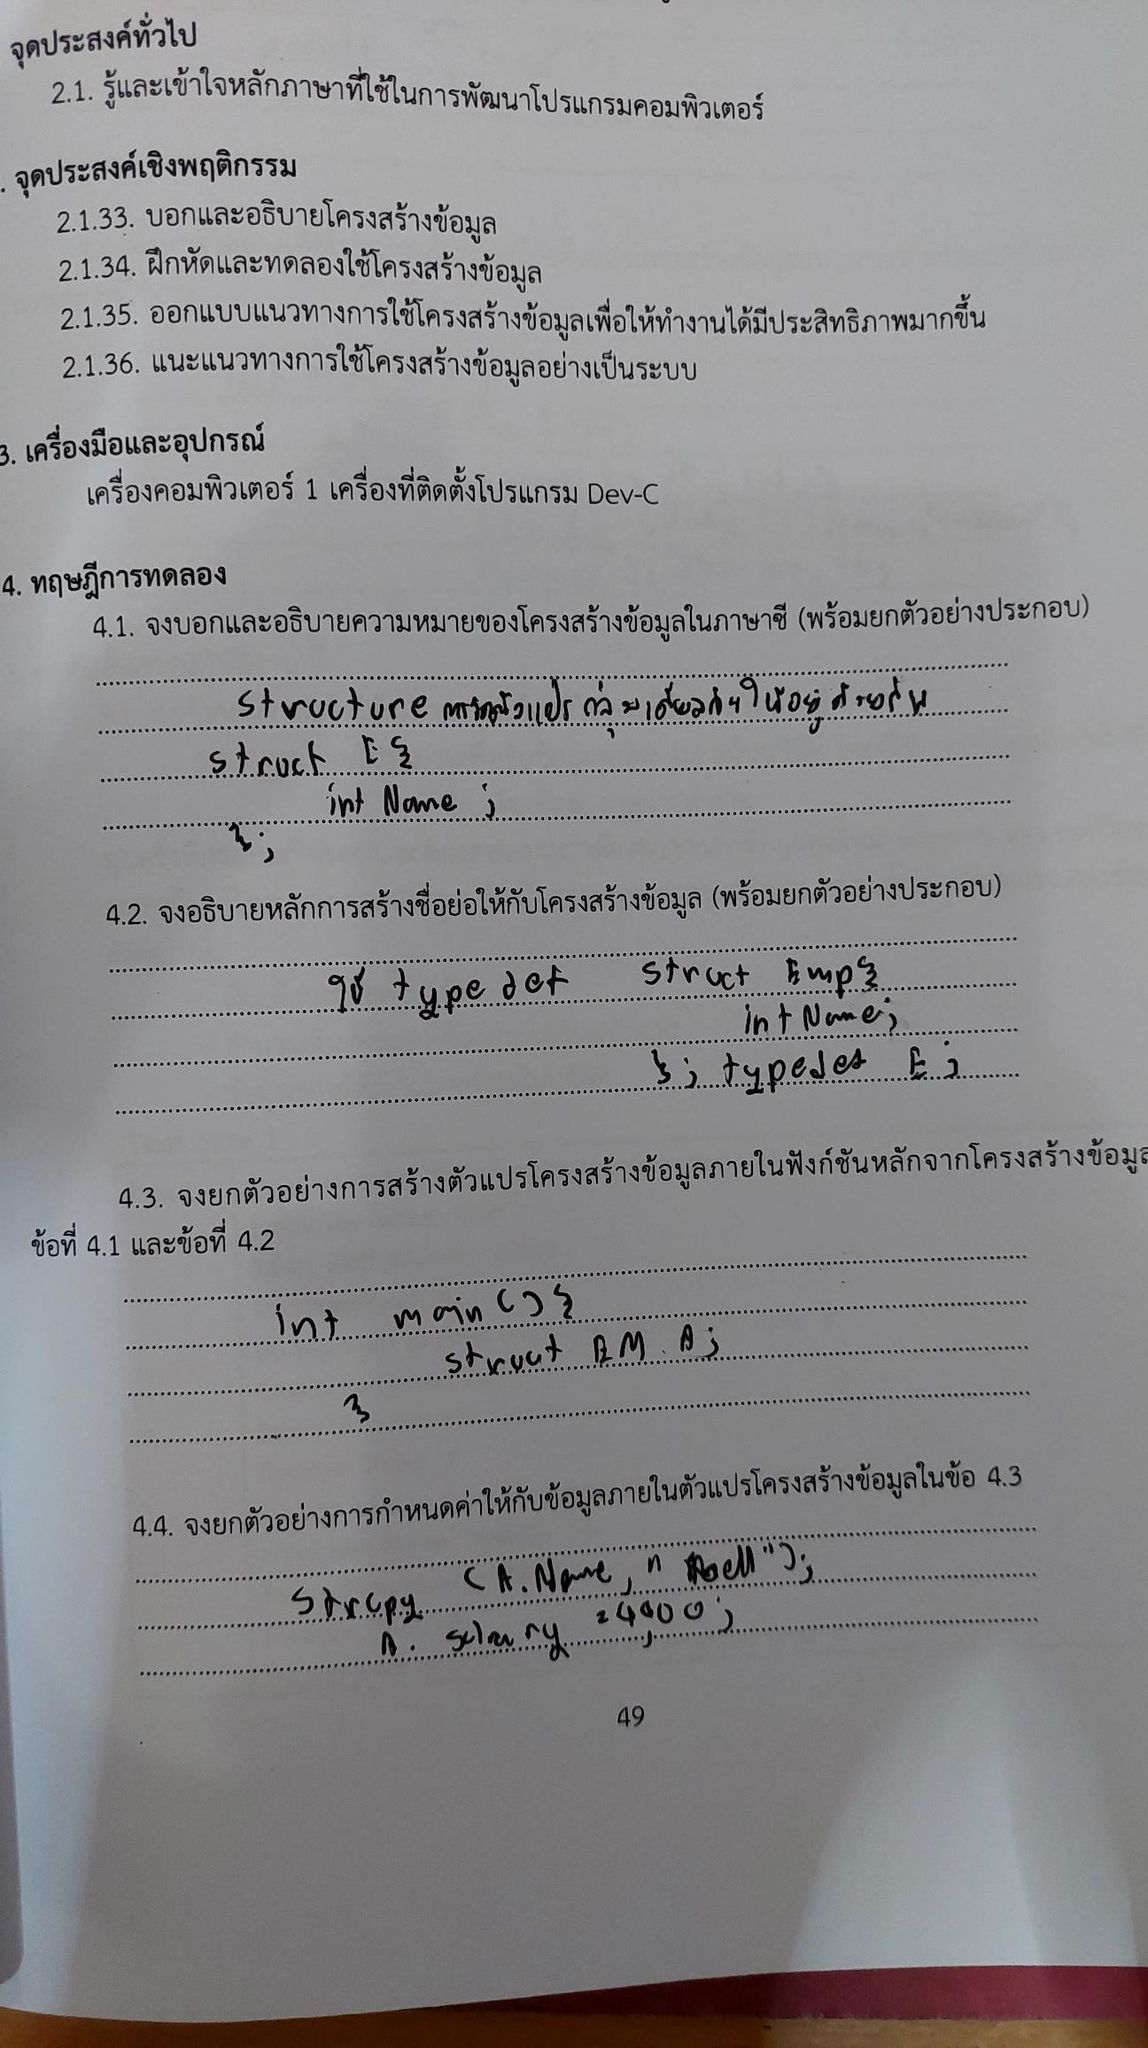 จุดประสงค์ทั่วไป
2.1. รู้และเข้าใจหลักภาษาที่ใช้ในการพัฒนาโปรแกรมคอมพิวเตอร์
. จุดประสงค์เชิงพฤติกรรม
2.1.33. บอกและอธิบายโครงสร้างข้อมูล
2.1.34. ฝึกหัดและทดลองใช้โครงสร้างข้อมูล
2.1.35. ออกแบบแนวทางการใช้โครงสร้างข้อมูลเพื่อให้ทำงานได้มีประสิทธิภาพมากขึ้น
2.1.36. แนะแนวทางการใช้โครงสร้างข้อมูลอย่างเป็นระบบ
3. เครื่องมือและอุปกรณ์
เครื่องคอมพิวเตอร์ 1 เครื่องที่ติดตั้งโปรแกรม Dev-C
4. ทฤษฎีการทดลอง
4.1. จงบอกและอธิบายความหมายของโครงสร้างข้อมูลในภาษาซี (พร้อมยกตัวอย่างประกอบ)
Structure ตัวแปร กลุ่มเดียวกันให้อยู่ด้วยกัน
struct E{
int Name ;
};
4.2. จงอธิบายหลักการสร้างชื่อย่อให้กับโครงสร้างข้อมูล (พร้อมยกตัวอย่างประกอบ)
ใช้ typedef struct Emp{
int Name;
}; typedef E ;
4.3. จงยกตัวอย่างการสร้างตัวแปรโครงสร้างข้อมูลภายในฟังก์ชันหลักจากโครงสร้างข้อมูล
ข้อที่ 4.1 และข้อที่ 4.2
int main(){
struct EM A;
}
4.4. จงยกตัวอย่างการกำหนดค่าให้กับข้อมูลภายในตัวแปรโครงสร้างข้อมูลในข้อ 4.3
Strcpy (A.Name, " ");
A. =4000;
49